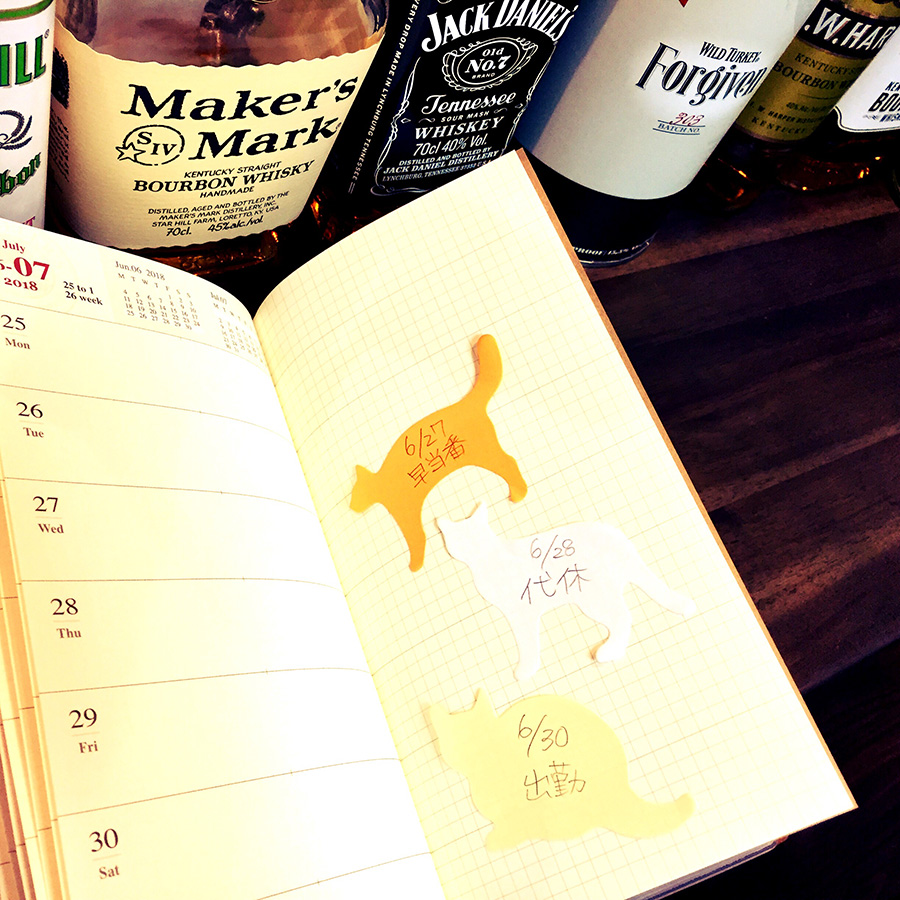 HILL
Maker's
Mark
S IV
KENTUCKY STRAIGHT
BOURBON WHISKY
HANDMADE
DISTILLED, AGED AND BOTTLED BY THE
MAKER'S MARK DISTILLERY, INC.
STAR HILL FARM, LORETTO, KY. USA
70cl. 45%alc./vol.
EVERY DROP MADE IN LYNCHBURG TENNESSEE
JACK DANIEL'S
Old
No.7
BRAND
Tennessee
SOUR MASH
WHISKEY
70cl 40% Vol.
DISTILLED AND BOTTLED BY
JACK DANIEL DISTILLERY
LYNCHBURG, TENNESSEE
WILD TURKEY
Forgiven
303
BATCH NO.
.W.HAR
KENTUCKY
BOURBON
KENTUCKY
July
-07
2018
25 to 1
26 week
Jun.06 2018
M T W T F S S
Jul.07
25
Mon
26
Tue
27
Wed
28
Thu
29
Fri
30
Sat
6/27
早当番
6/28
代休
6/30
出勤